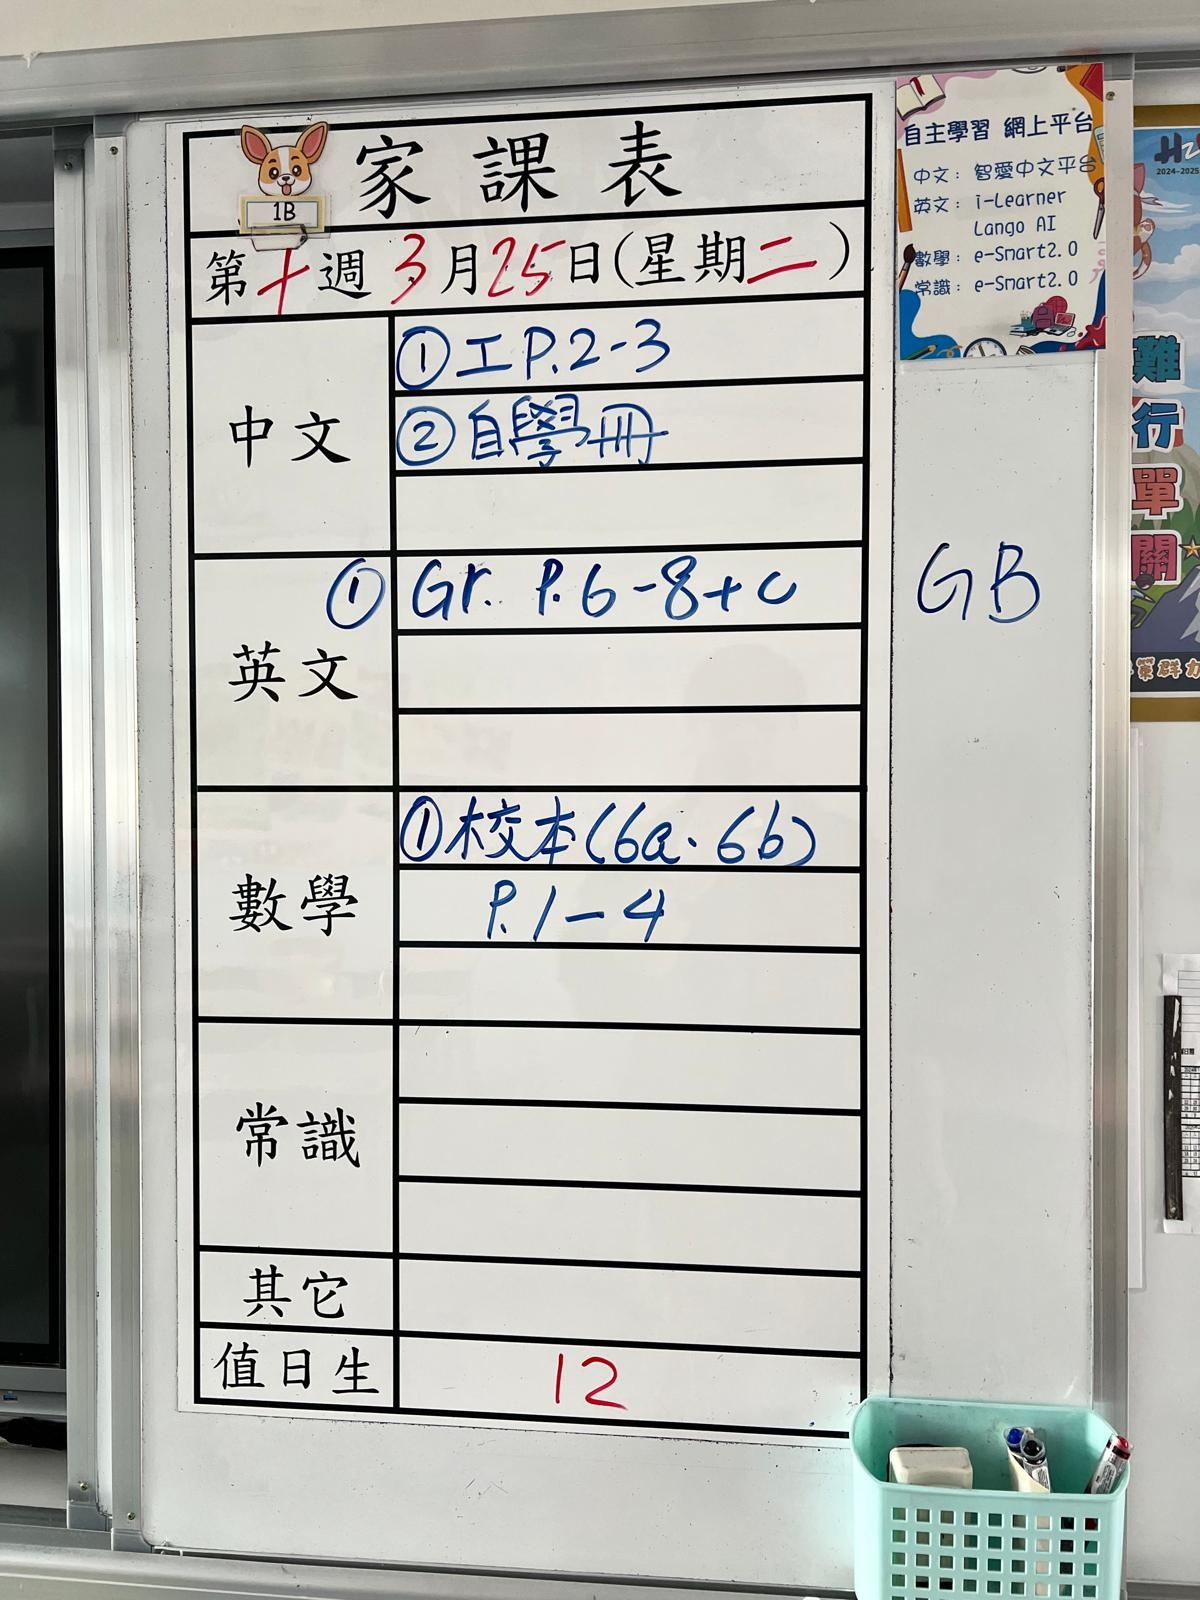 家課表
1B
第十週 3月25日(星期二)
中文
①工P.2-3
②自學冊
英文
① Gr. P.6-8+c
GB
數學
①校本(6a、6b)
P.1-4
常識
其它
值日生
12
自主學習 網上平台
中文：智愛中文平台
英文：i-Learner
Lango AI
數學：e-Smart2.0
常識：e-Smart2.0
2024-2025
難
行
單
關
策群力